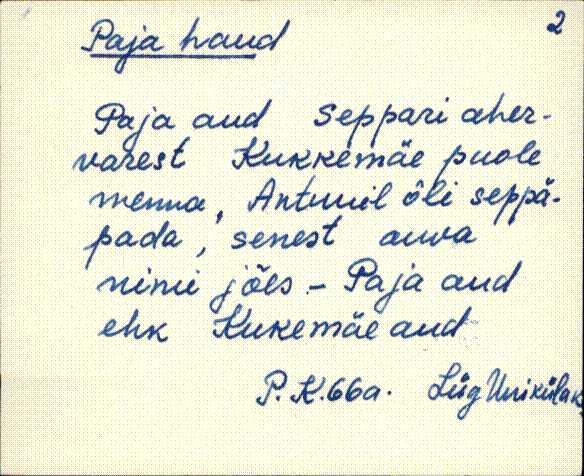 2
Paja haud
Paja aud Seppari aher-
varest Kukkemäe puole
menna, Antuuil õli seppä-
pada, senest auva
nimi jões - Paja aud
ehk Kukemäe aud
P. K. 66a. Lüg Uuiküla k.